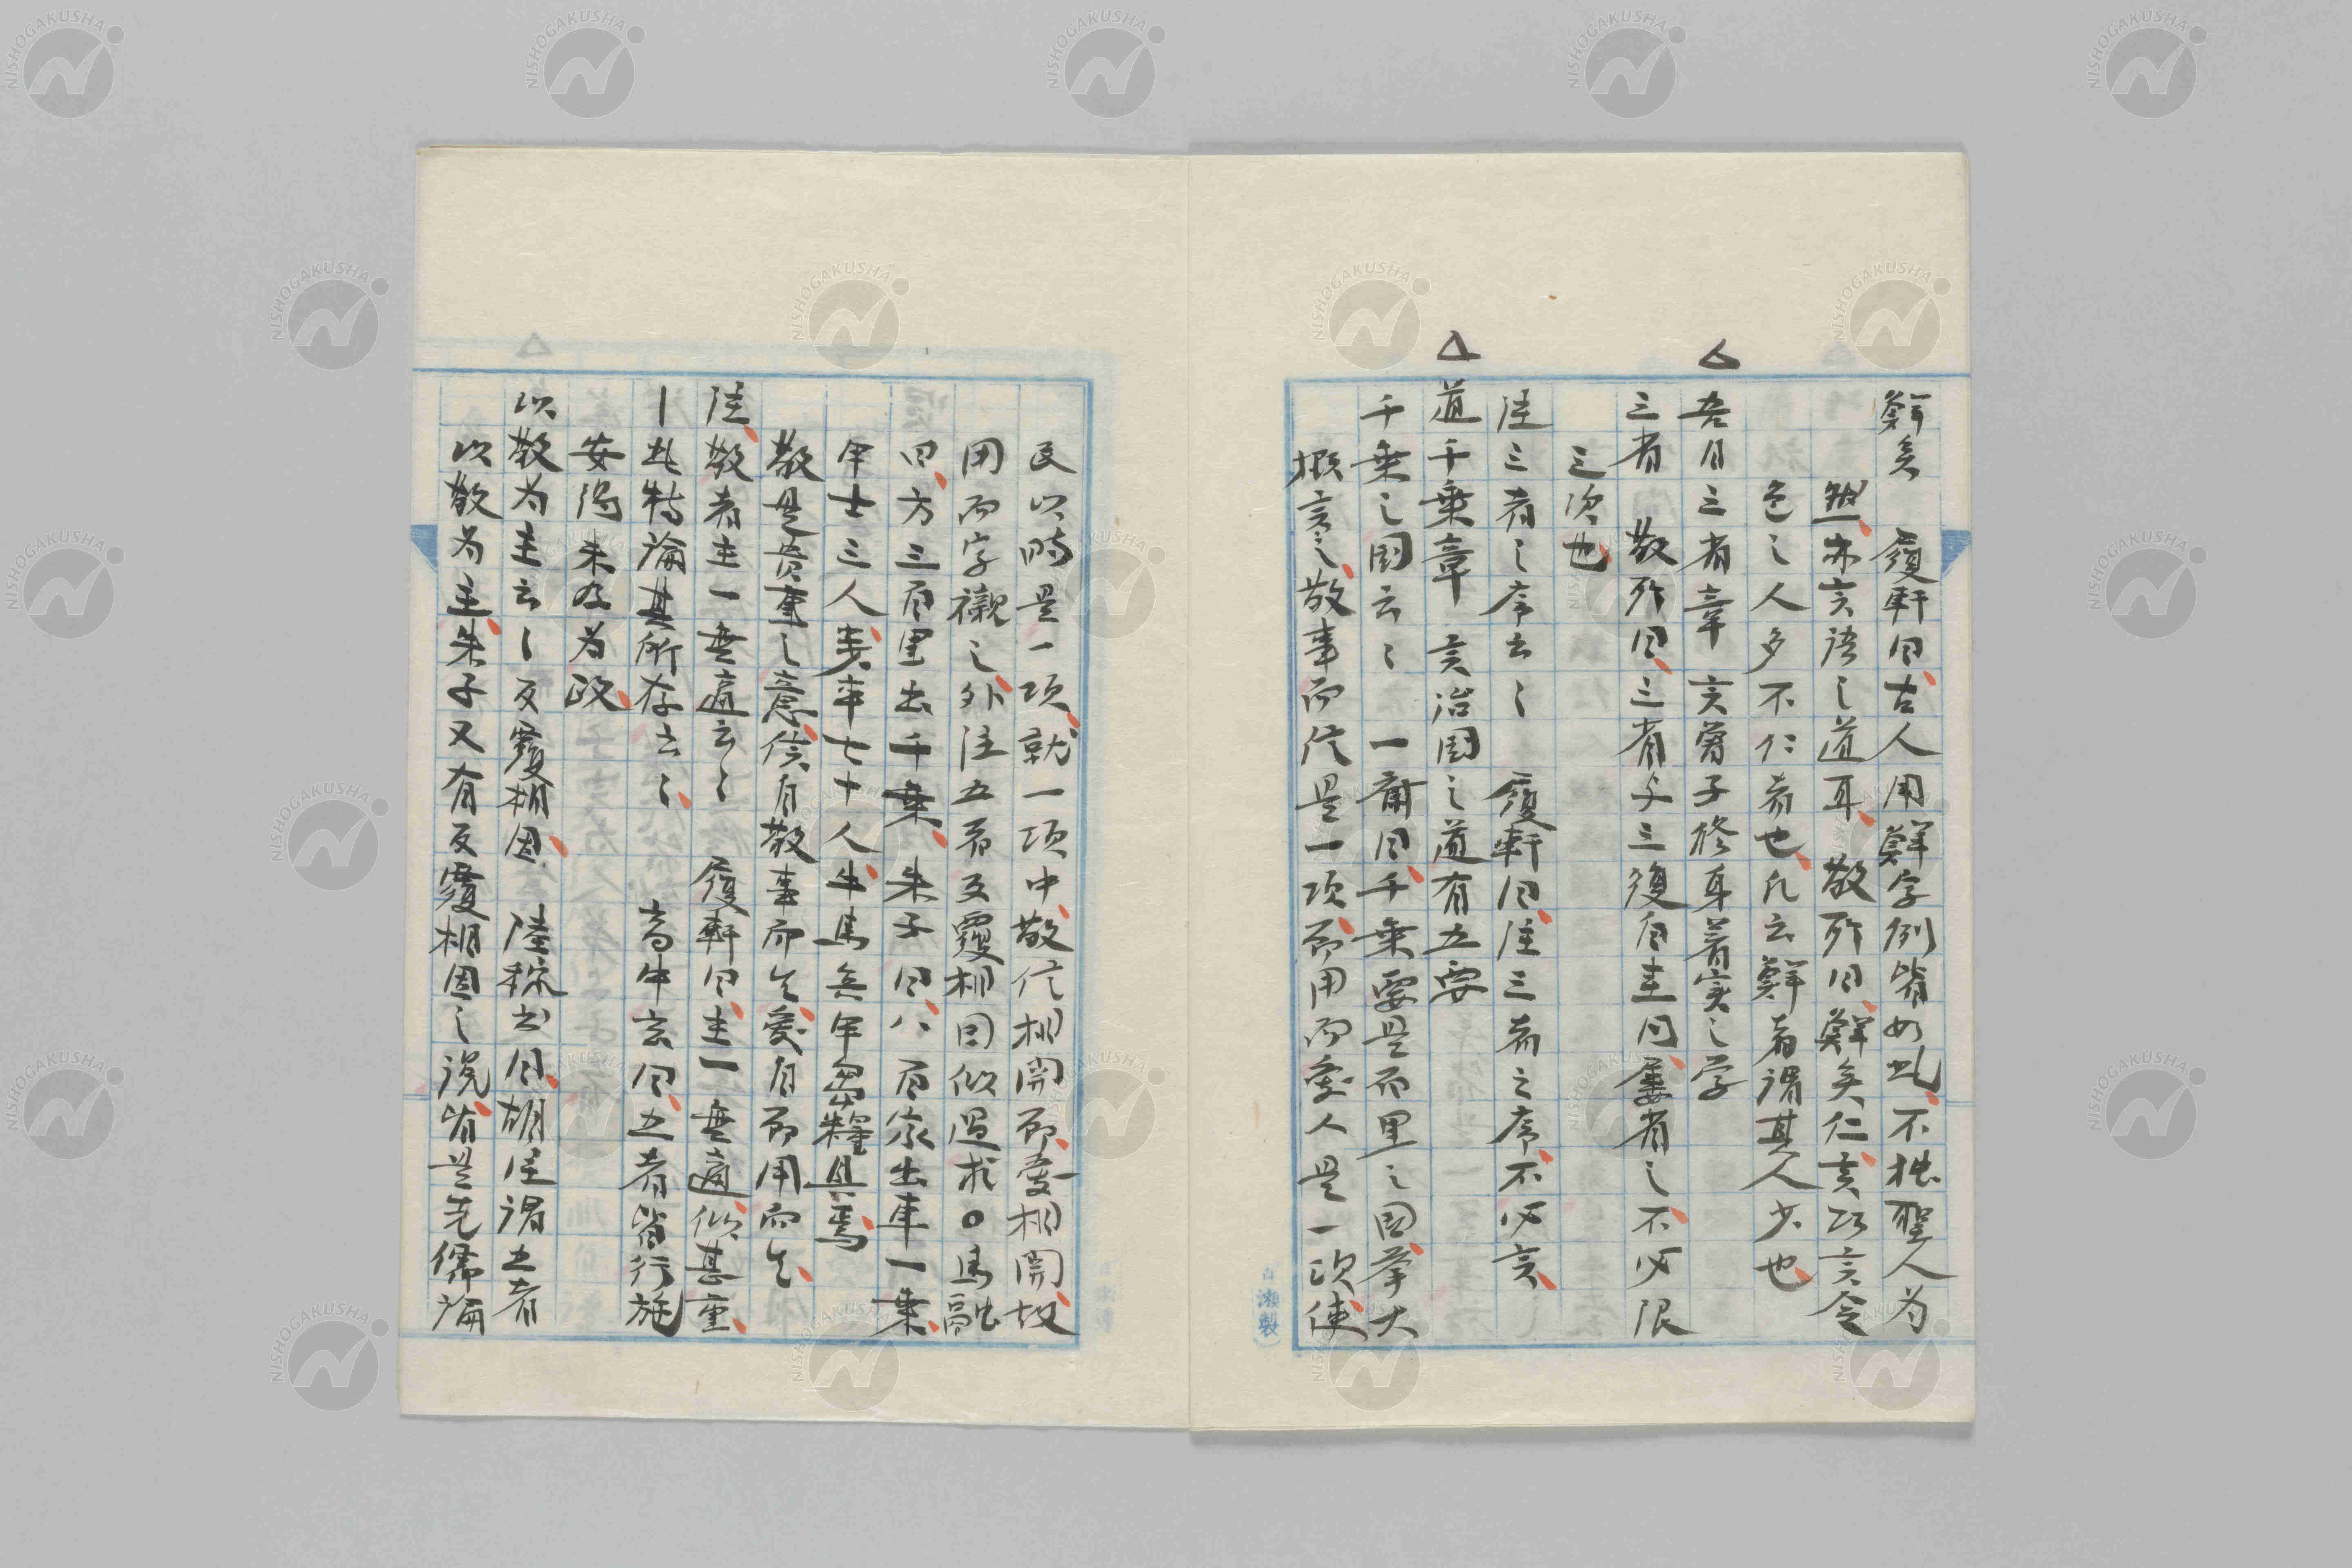 鮮矣 履軒曰古人用鮮字例皆如此不独聖人為
然亦言語之道耳 敬所曰鮮矣仁言巧言令
色之人多不仁者也凡云鮮者謂其人少也
吾日三省章 言曽子修身着実之学
三省 敬所曰三省与三復白圭同屢省之不必限
三次也
注三者之序云〻 履軒曰注三者之序不必言
道千乗章 言治国之道有五要
千乗之国云〻 一斎曰千乗要是百里之国挙大
概言之敬事而信是一項節用而愛人是一項使
民以時是一項就一項中敬信相関節愛相関故
用而字襯之外注五者反覆相因似過求〇馬融
曰方三百里出千乗朱子曰八百家出車一乗
甲士三人 車七十人牛馬兵甲芻糧具焉
敬是貴重之意信自敬事而生愛自節用而生
注敬者主一無適云〻 履軒曰主一無適似甚重
此特論其所存云〻 高中玄曰五者皆行施
安得未及為政
以敬為主云〻反覆相因 陸稼書曰胡注謂五者
以敬為主朱子又有反覆相因之説皆是先儒論
NISHOGAKUSHA